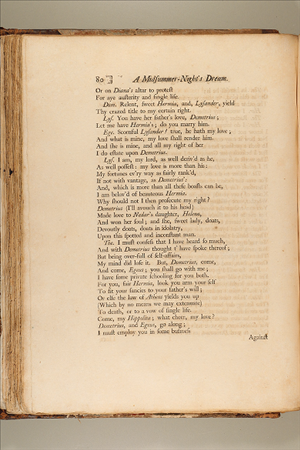 80 A Midsummer-Night's Dream.
Or on Diana's altar to protest
For aye austerity and single life.
Dem. Relent, sweet Hermia, and, Lysander, yield
Thy crazed title to my certain right.
Lys. You have her father's love, Demetrius;
Let me have Hermia's; do you marry him.
Ege. Scornful Lysander! true, he hath my love;
And what is mine, my love shall render him.
And she is mine, and all my right of her
I do estate upon Demetrius.
Lys. I am, my lord, as well deriv'd as he,
As well possest: my love is more than his:
My fortunes ev'ry way as fairly rank'd,
If not with vantage, as Demetrius's:
And, which is more than all these boasts can be,
I am belov'd of beauteous Hermia.
Why should not I then prosecute my right?
Demetrius (I'll avouch it to his head)
Made love to Nedar's daughter, Helena,
And won her soul; and she, sweet lady, doats,
Devoutly doats, doats in idolatry,
Upon this spotted and inconstant man.
The. I must confess that I have heard so much,
And with Demetrius thought t' have spoke thereof;
But being over-full of self-affairs,
My mind did lose it. But, Demetrius, come,
And come, Egeus; you shall go with me;
I have some private schooling for you both.
For you, fair Hermia, look you arm your self
To fit your fancies to your father's will;
Or else the law of Athens yields you up
(Which by no means we may extenuate)
To death, or to a vow of single life.
Come, my Hippolita; what cheer, my love?
Demetrius, and Egeus, go along;
I must employ you in some business
Against